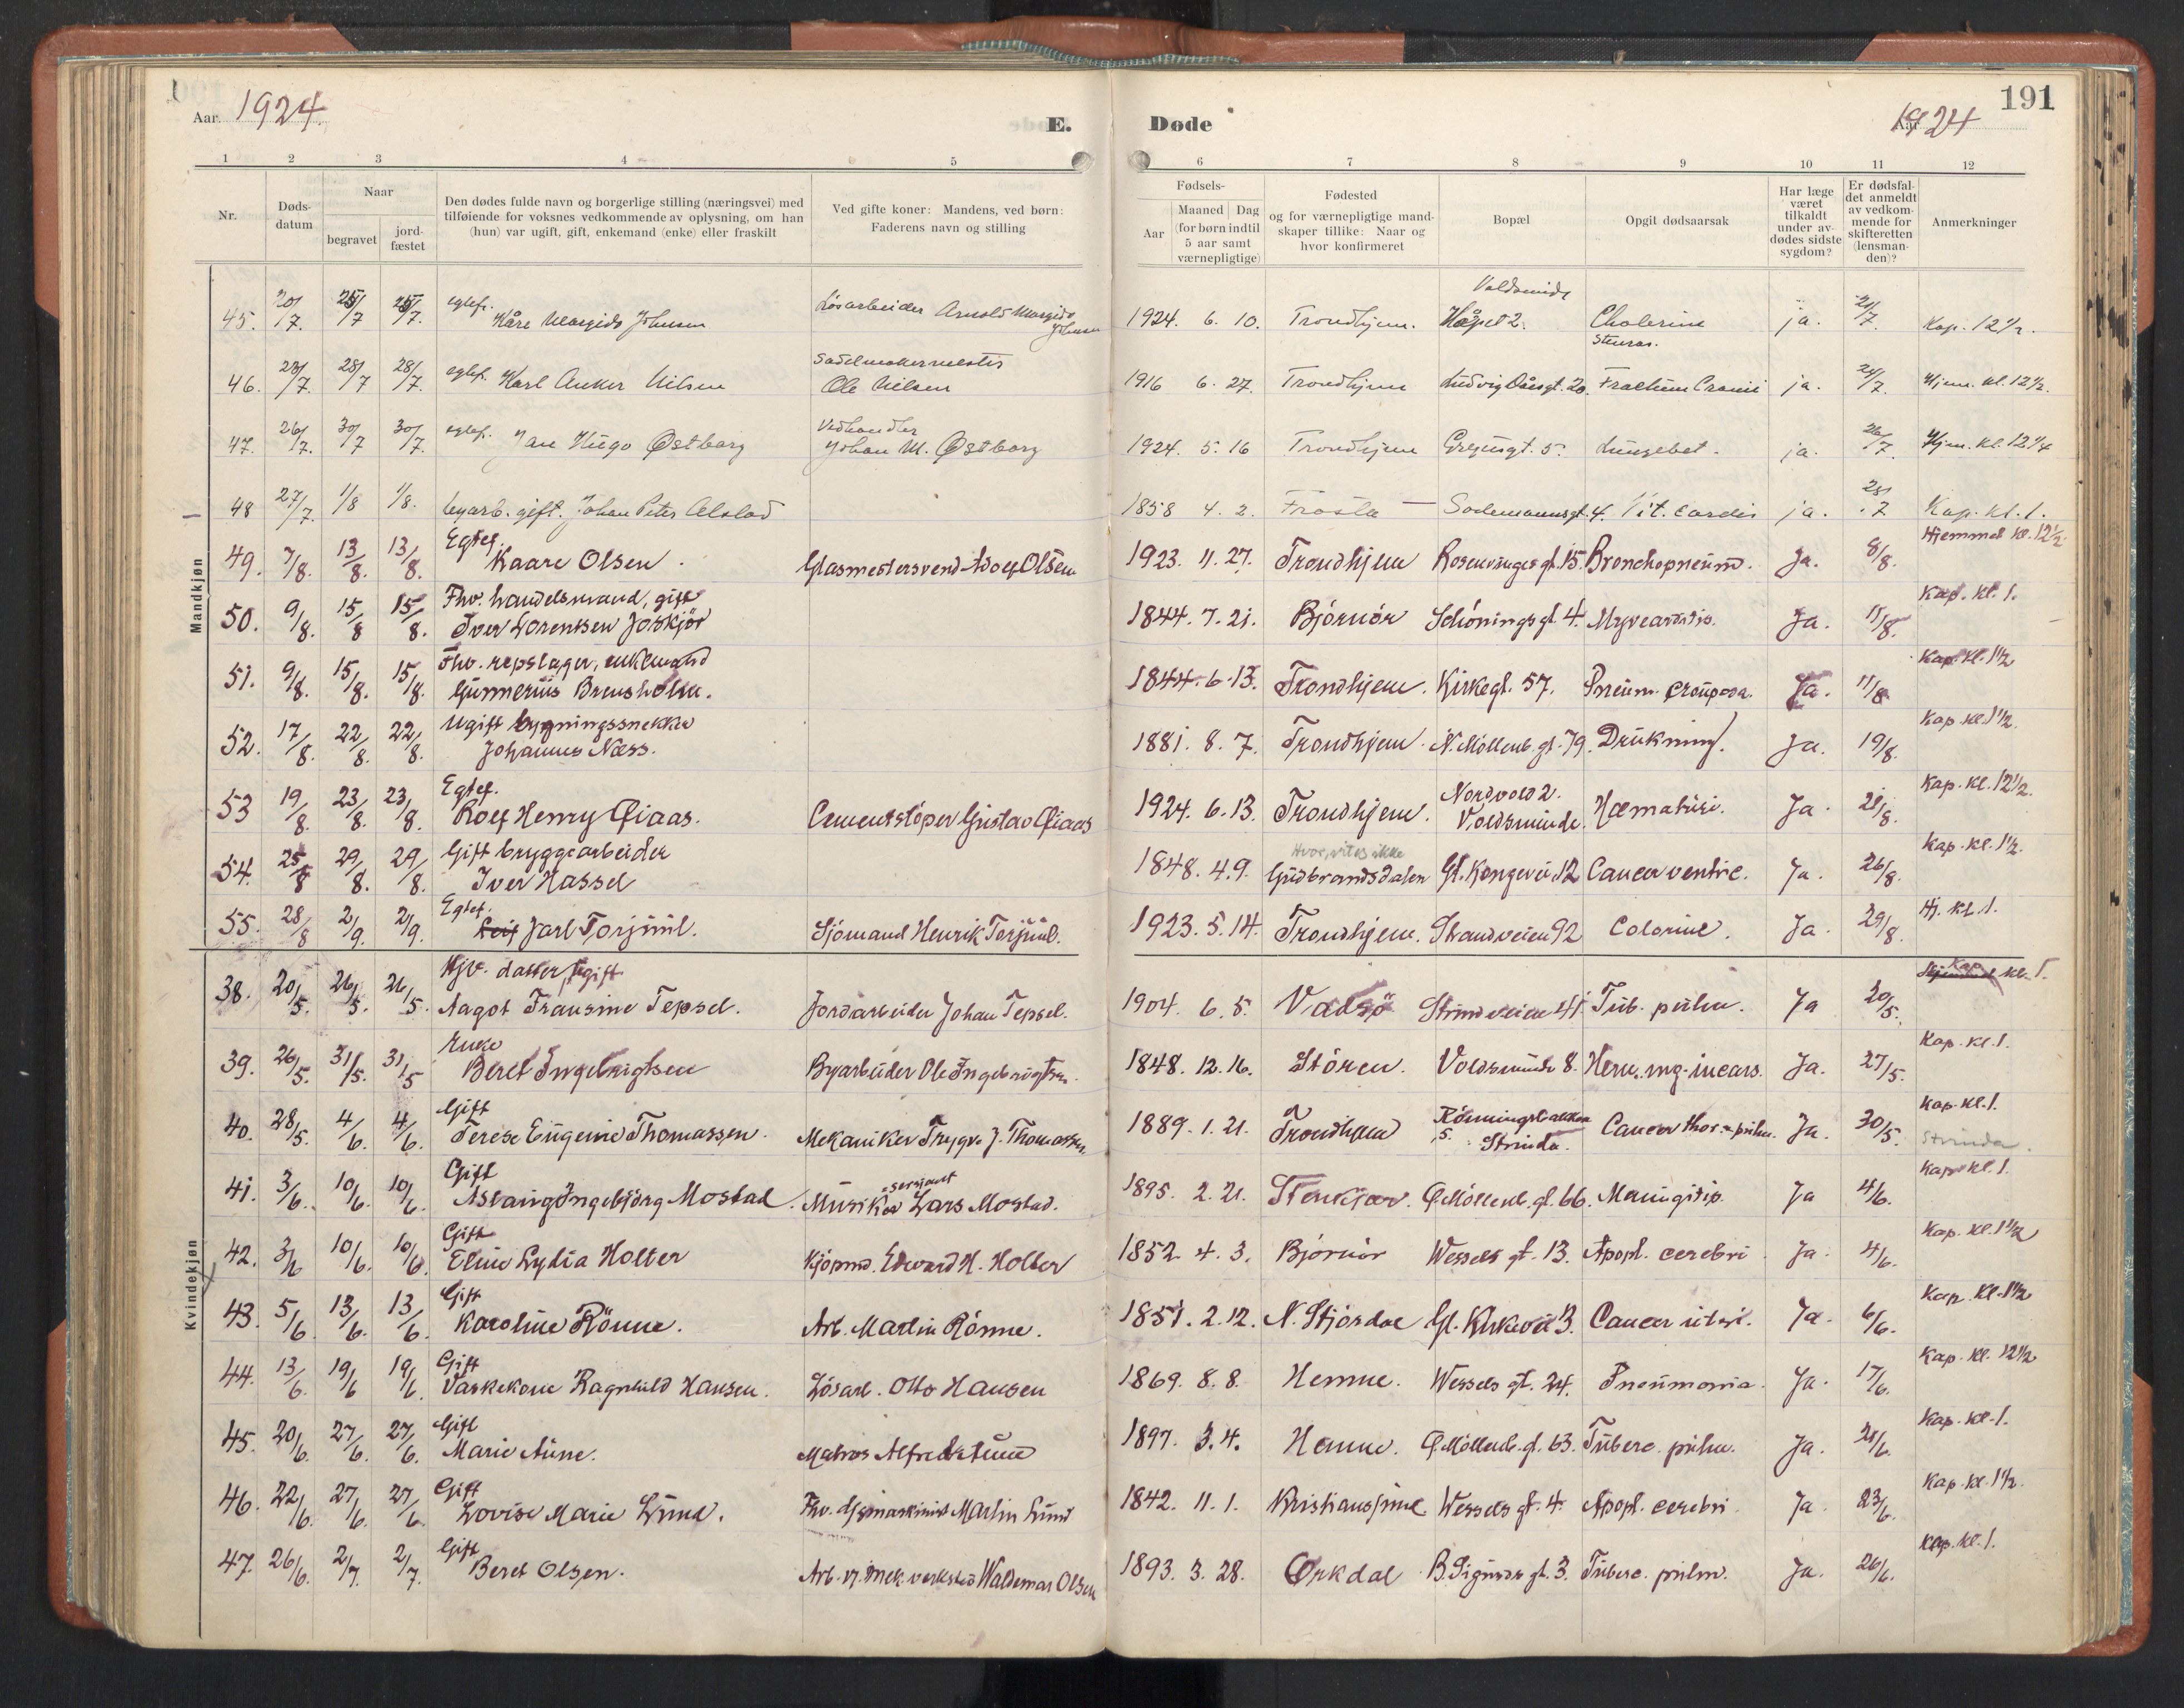 191
Aar. 1924.
E.
Døde
Aar 1924
1 2 3 4 5 6 7 8 9 10 11 12
Nr.
Døds-
datum
Naar
begravet
jord-
fæstet
Den dødes fulde navn og borgerlige stilling (næringsvei) med
tilføiende for voksnes vedkommende av oplysning, om han
(hun) var ugift, gift, enkemand (enke) eller fraskilt
Ved gifte koner: Mandens, ved børn:
Faderens navn og stilling
Fødsels-
Aar
Maaned Dag
(for børn indtil
5 aar samt
værnepligtige)
Fødested
og for værnepligtige mand-
skaper tillike: Naar og
hvor konfirmeret
Bopæl
Opgit dødsaarsak
Har læge
været
tilkaldt
under av-
dødes sidste
sygdom?
Er dødsfal-
det anmeldt
av vedkom-
mende for
skifteretten
(lensman-
den)?
Anmerkninger
Mandkjøn
45. 20/7. 25/7 25/7. egtef. Kåre Margido Johnsen Løsarbeider Arnold Margido Johnsen 1924. 6. 10. Trondhjem. Voldsminde Håpet 2. Cholerine ja. 21/7. Kap. 12 1/2.
46. 23/7. 28/7 28/7. egtef. Karl Anker Nilsen Sadelmakermester Ole Nilsen 1916 6. 27. Trondhjem Ludvig Daasgt. 20. Fractura Cranii ja. 24/7. Hjem. kl. 12 1/2.
47. 26/7. 30/7 30/7. egtef. Jan Hugo Østborg Vedhandler Johan M. Østborg 1924. 5. 16 Trondhjem Gregusgt. 5. Lungebet. ja. 26/7. Hjem. kl. 12 1/4
48 27/7. 1/8 1/8. byarb. gift. Johan Peter Alstad 1858 4. 2. Frosta Sodemannsgt. 4. Vit. cordis ja. 28/7 Kap. kl. 1.
49. 7/8. 13/8. 13/8. Egtef. Kaare Olsen. Glasmestersvend Adolf Olsen 1923. 11. 27. Trondhjem Rosenvinges gt. 15. Bronchopneum. Ja. 8/8. Hjemmet kl. 12 1/2.
50. 9/8. 15/8 15/8. Fhv. handelsmand, gift Iver Lorentsen Joskjör 1844. 7. 21. Björnör Schönings gt. 4. Ja. 11/8. Kap. kl. 1.
51. 9/8. 15/8. 15/8. Fhv. repslager, enkemand Gunnerius Brensholm. 1844. 6. 13. Trondhjem. Kirkegt. 57. Pneum. crouposa. Ja. 11/8 Kap. kl. 1 1/2
52. 17/8. 22/8. 22/8. Ugift bygningssnekker Johannes Næss. 1881. 8. 7. Trondhjem. N. Möllenb. gt. 79. Drukning. Ja. 19/8. Kap. kl. 1 1/2.
53 19/8. 23/8. 23/8. Egtef. Rolf Henry Qiaas. Cementstöper Gustav Qiaas 1924. 6. 13. Trondhjem. Nordvold 2. Voldsminde. Ja. 21/8. Kap. kl. 12 1/2.
54. 25/8 29/8. 29/8. Gift bryggearbeider Iver Hassel 1848. 4. 9. Hvor, vites ikke Gudbrandsdalen Gl. Kongevei 12 Cancer ventric. Ja. 26/8. Kap. kl. 1 1/2.
55. 28/8 2/9. 2/9. Egtef. Leif Jarl Torjuul. Sjömand Henrik Torjuul. 1923. 5. 14. Trondhjem. Strandveien 92 Colorine. Ja. 29/8. Hj. kl. 1.
Kvindekjøn
38. 20/5. 26/5. 26/5. Hjv. datter, ugift Aagot Fransine Tepsel. Jordarbeider Johan Tepsel. 1904. 6. 5. Vadsø Strindveien 41. Tub. pulm. Ja 20/5. Kap. kl. 1.
39. 26/5. 31/5. 31/5 Enke Beret Ingebrigtsen Byarbeider Ole Ingebrigtsen. 1848. 12. 16. Stören. Voldsminde 8. Hern. ing. incars. Ja. 27/5. Kap. kl. 1.
40. 28/5. 4/6. 4/6. Gift Terese Eugenie Thomassen. Mekaniker Trygve J. Thomassen. 1889. 1. 21. Trondhjem Rönningsbakken 5. Strinda. Cancer thor. & pulm. Ja. 30/5. Kap. kl. 1. Strinda
41. 3/6. 10/6. 10/6. Gift Aslaug Ingebjörg Mostad. Musiksersjant Lars Mostad. 1895. 2. 21. Stenkjær. Ø. Möllenb. gt. 66. Meningitis. Ja 4/6. Kap. kl. 1.
42. 3/6 10/6. 10/6. Gift Eline Lydia Holter Kjöpmd. Edvard H. Holter 1852. 4. 3. Björnör Wessels gt. 13. Apopl. cerebri. Ja. 4/6. Kap. kl. 1 1/2
43. 5/6. 13/6. 13/6. Gift Karoline Rönne. Arb. Martin Rönne. 1851. 2. 12. N. Stjördal Gl. Kirkevei 3. Cancer uteri. Ja. 6/6. Kap. kl. 1 1/2
44. 13/6. 19/6 19/6. Gift Vaskekone Ragnhild Hansen. Lösarb. Otto Hansen 1869. 8. 8. Hemne. Wessels gt. 24. Pneumonia. Ja. 17/6. Kap. kl. 12 1/2
45. 20/6. 27/6. 27/6. Gift Marie Aune. Matros Alfred Aune 1897. 3. 4. Hemne. Ø. Möllenb. gt. 63. Tuberc. pulm. Ja. 21/6. Kap. kl. 1.
46. 22/6. 27/6. 27/6. Gift Lovise Marie Lund. Fhv. Martin Lund 1842. 11. 1. Kristianssund Wessels gt. 4. Apopl. cerebri Ja 23/6. Kap. kl. 1 1/2.
47. 26/6. 2/7. 2/7. Gift Beret Olsen. Arb. v. mek. verksted Waldemar Olsen 1893. 3. 28. Orkdal B. Sigurds gt. 3. Tuberc. pulm. Ja. 26/6. Kap. kl. 1.